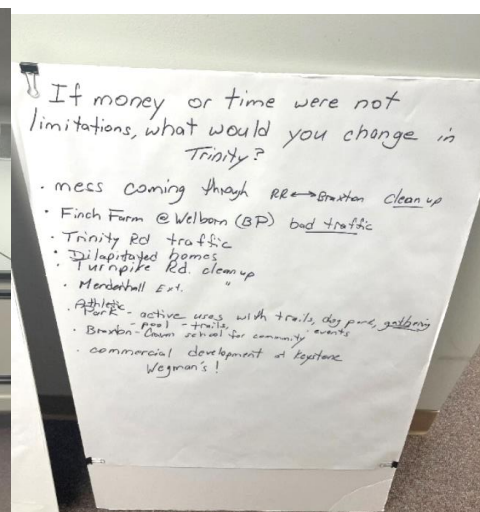 If money or time were not
limitations, what would you change in
Trinity?
· mess coming through RR↔Braxton clean up
· Finch Farm @ Welborn (BP) bad traffic
· Trinity Rd traffic
· Dilapitayed homes
· Turnpike Rd. clean up
· Mendenhall Ext. "
· Athletic
Park - active uses with trails, dog park, gathering
- pool - trails, events
· Braxton-Craven school for community
· commercial development at Keystone
Wegman's!